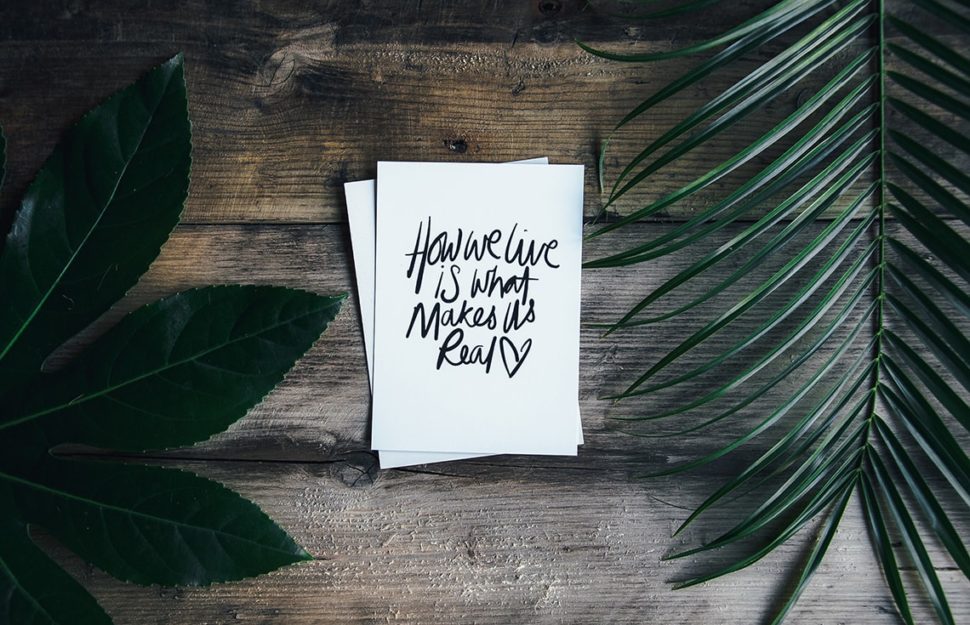 How we Live
is what
Makes Us
Real ♡